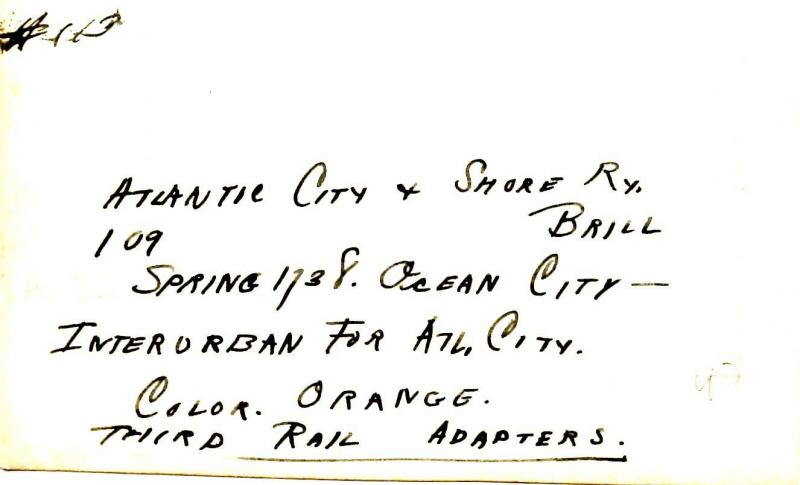 ATLANTIC CITY & SHORE RY.
109 BRILL
SPRING 1938. OCEAN CITY —
INTERURBAN FOR ATL. CITY.
COLOR. ORANGE.
THIRD RAIL ADAPTERS.